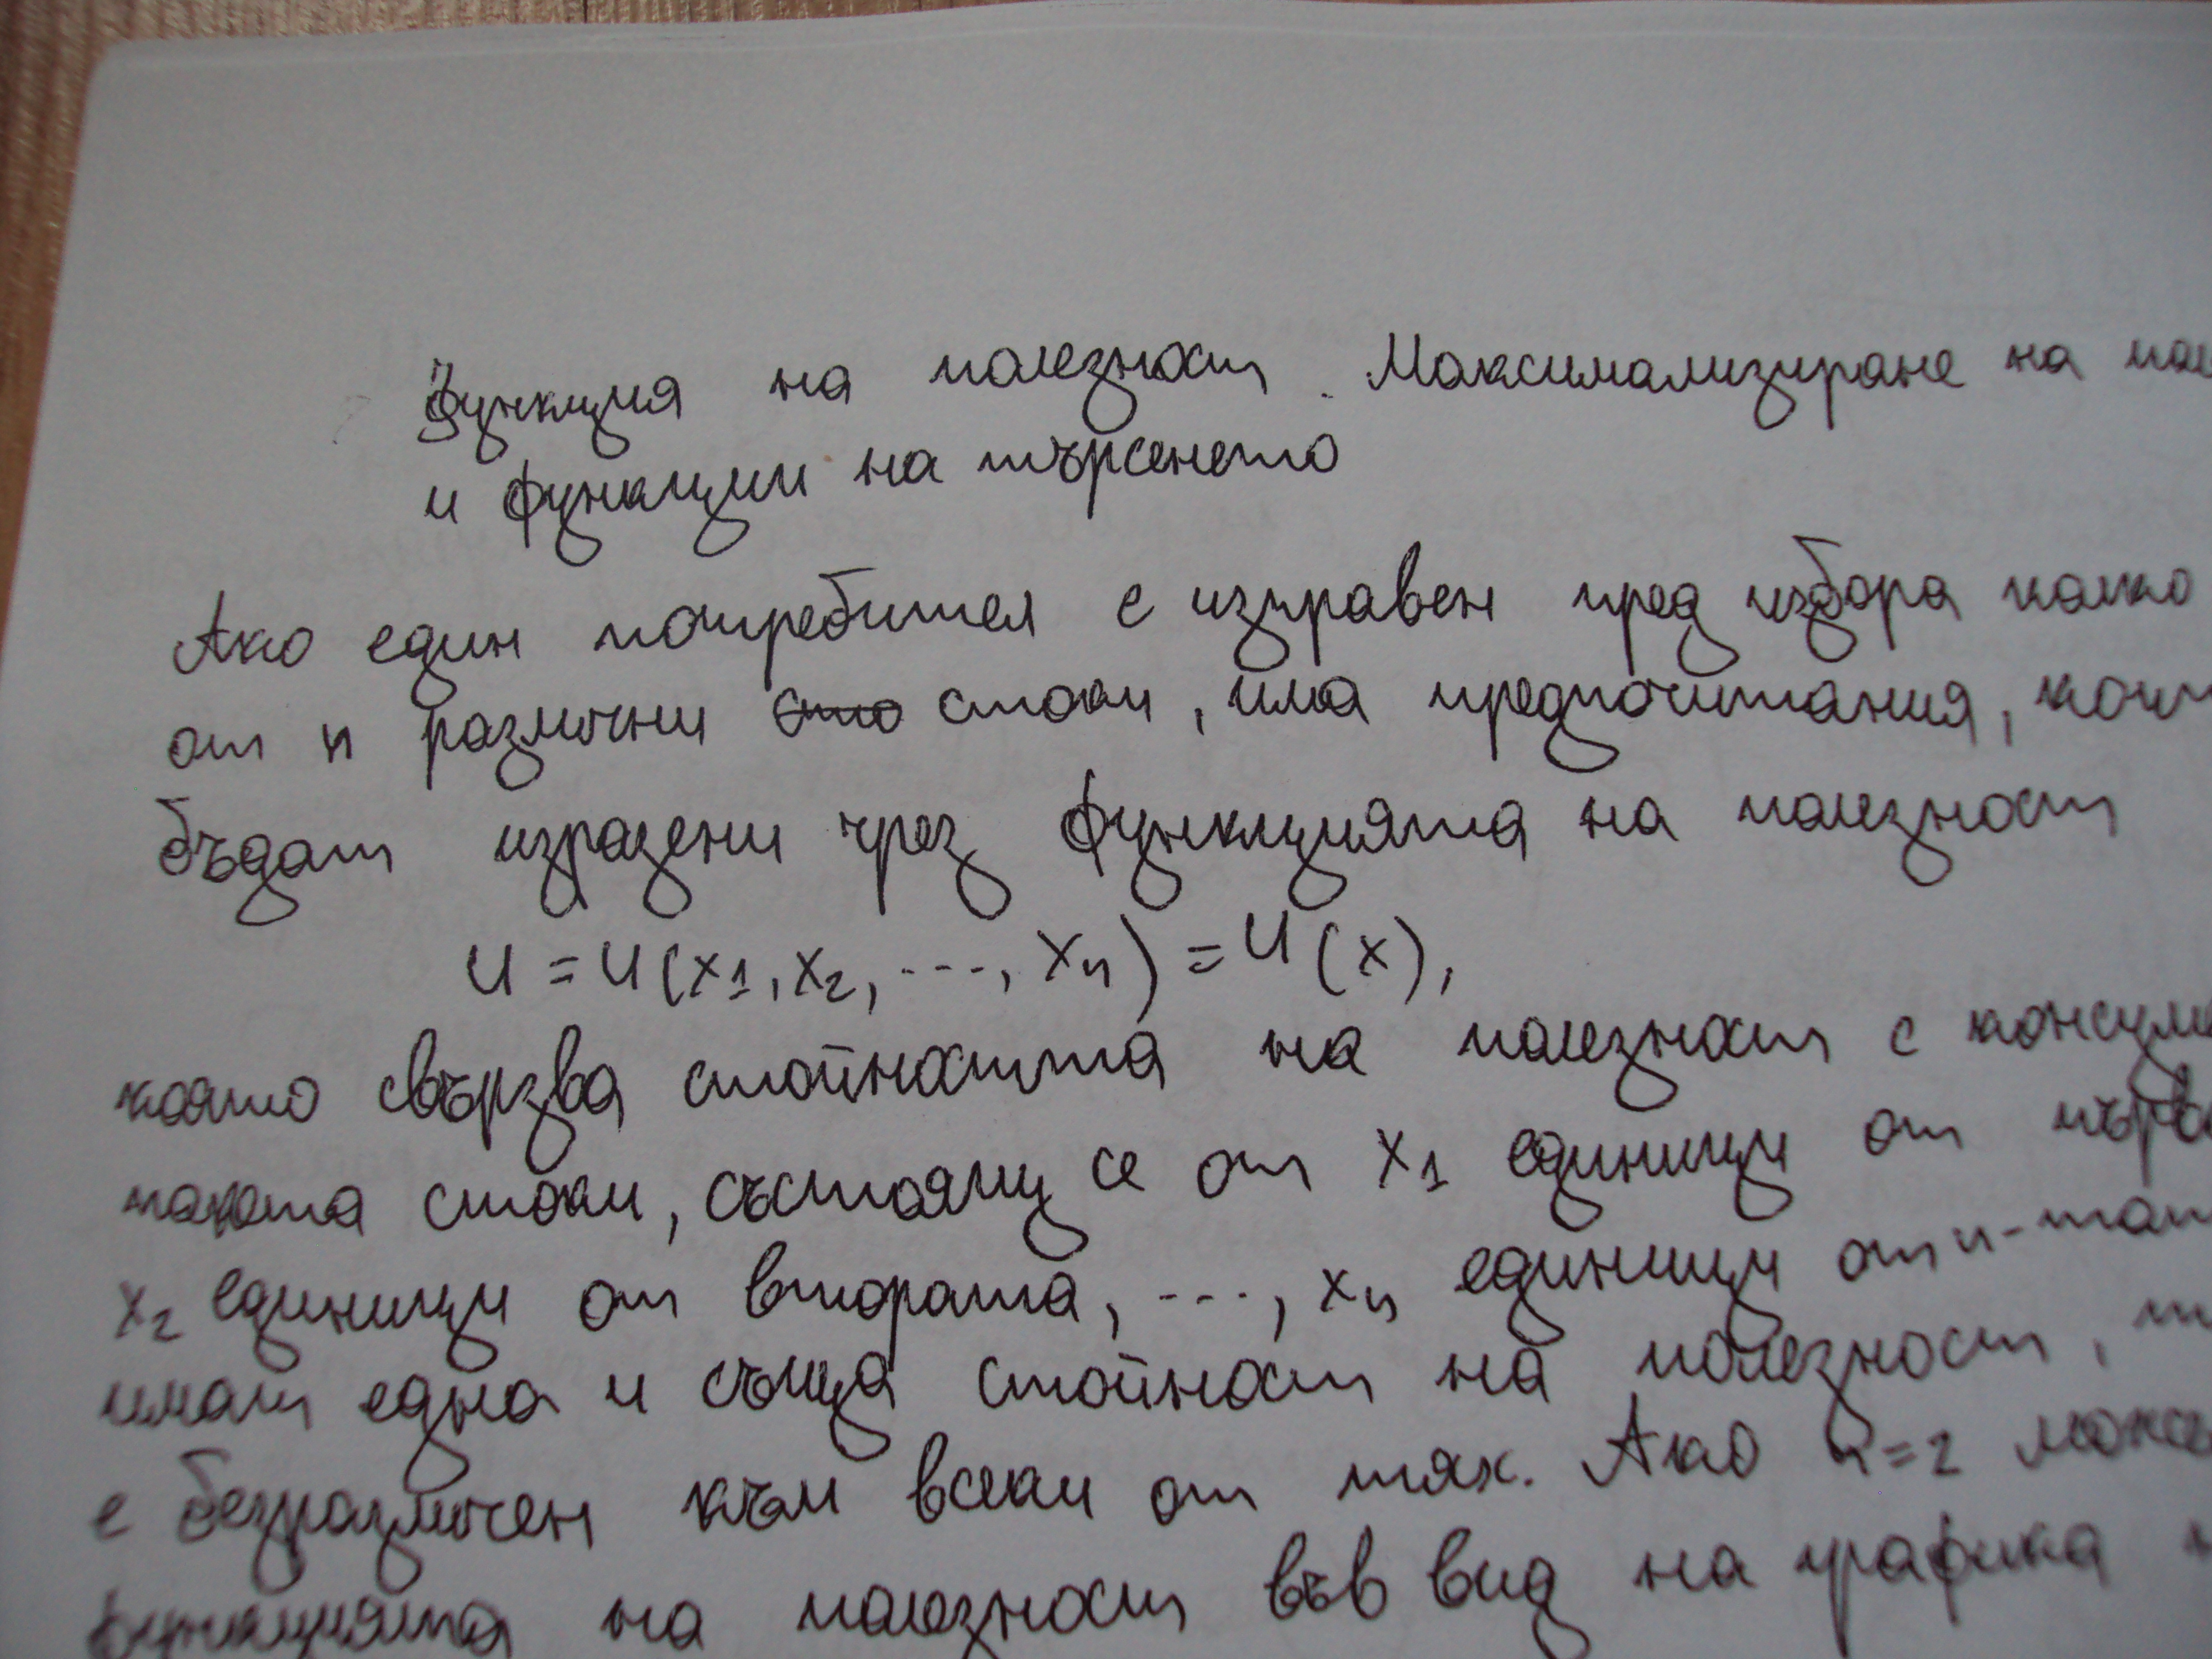 Функция на полезност. Максимализиране на
и функции на търсенето
Ако един потребител е изправен пред избора колко
от n различни сто стоки, има предпочитания,
бъдат изразени чрез функцията на полезност
U = U(x1, x2, ---, xn) = U(x),
която свързва стойността на полезност с
пакета стоки, състоящ се от x1 единици от
x2 единици от втората, ---, xn единици от n-
имат една и съща стойност на полезност,
е безразличен към всеки от тях. Ако n=2
функцията на полезност във вид на графика